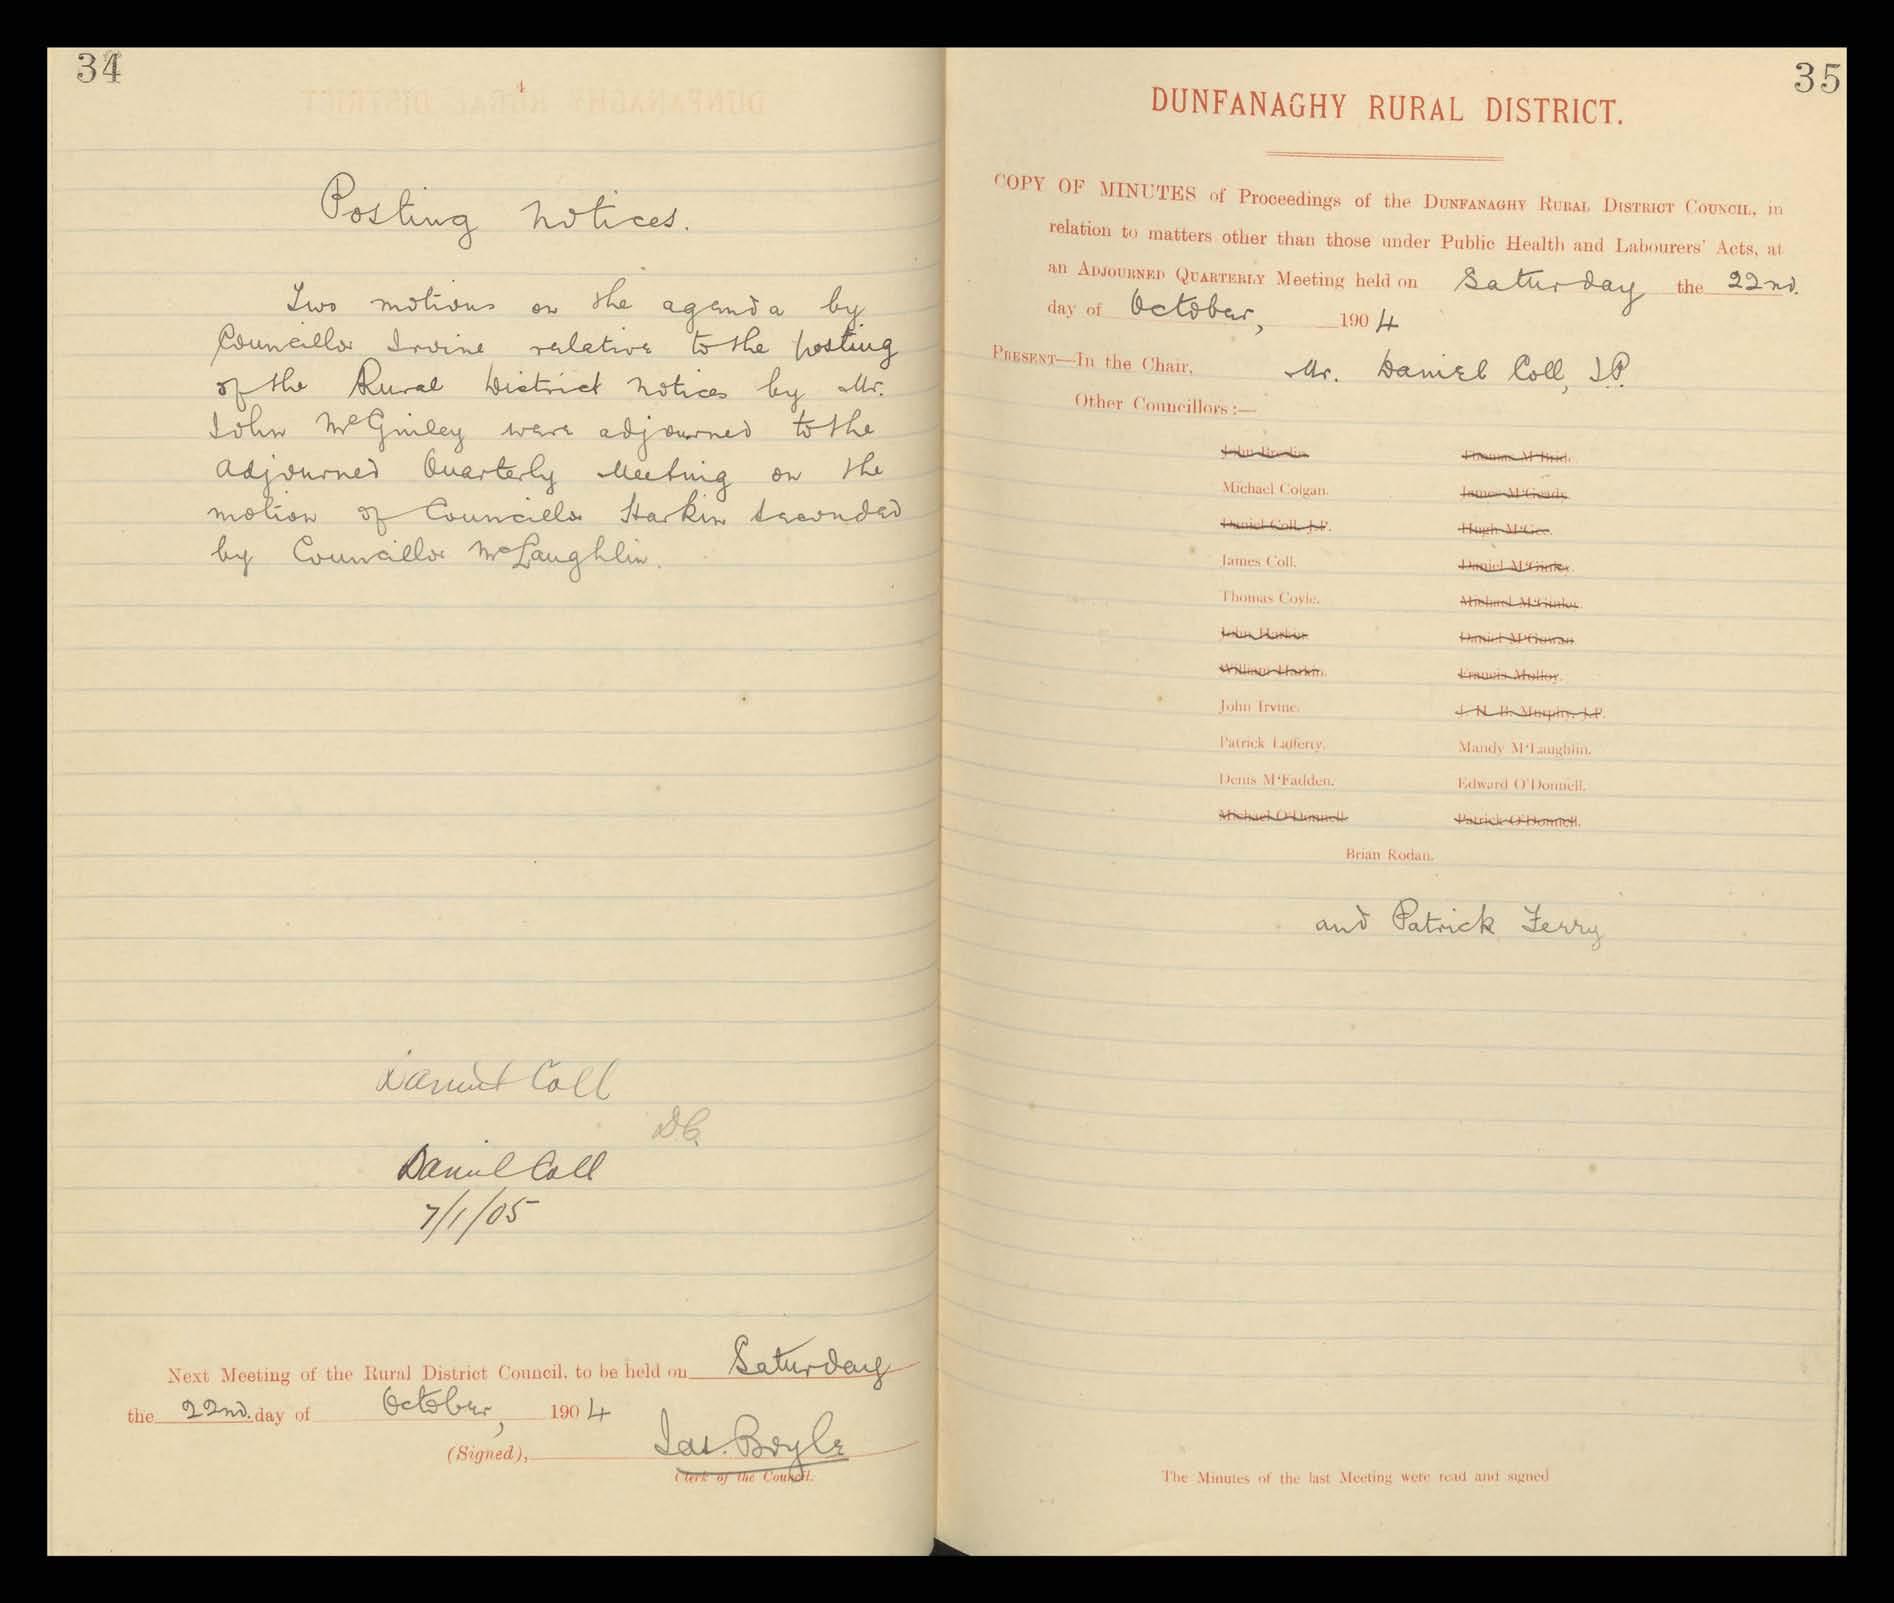 34
Posting Notices.
Two motions on the agenda by
Councillor Irvine relative to the posting
of the Rural District Notices by Mr.
John McGinley were adjourned to the
Adjourned Quarterly Meeting on the
motion of Councillor Harkin seconded
by Councillor McLaughlin.
Daniel Coll
D.C.
Daniel Coll
7/1/05
Next Meeting of the Rural District Council, to be held on Saturday
the 22nd. day of October, 1904
(Signed), Jas. Boyle
Clerk of the Council.
35
DUNFANAGHY RURAL DISTRICT.
COPY OF MINUTES of Proceedings of the DUNFANAGHY RURAL DISTRICT COUNCIL, in
relation to matters other than those under Public Health and Labourers' Acts, at
an ADJOURNED QUARTERLY Meeting held on Saturday the 22nd.
day of October, 1904
PRESENT—In the Chair, Mr. Daniel Coll, J.P.
Other Councillors:—
John
Michael Colgan. James
Daniel Coll, J.P. Hugh M'Gee.
James Coll. Daniel M'Ginley.
Thomas Coyle. Michael M'Ginley.
John Harkin. Daniel M'Gowan
William Harkin. Francis Molloy.
John Irvine. Murphy, J.P.
Patrick Lafferty. Mandy M'Laughlin.
Denis M'Fadden. Edward O'Donnell.
Michael O'Donnell. Patrick O'Donnell.
Brian Rodan.
and Patrick Ferry
The Minutes of the last Meeting were read and signed